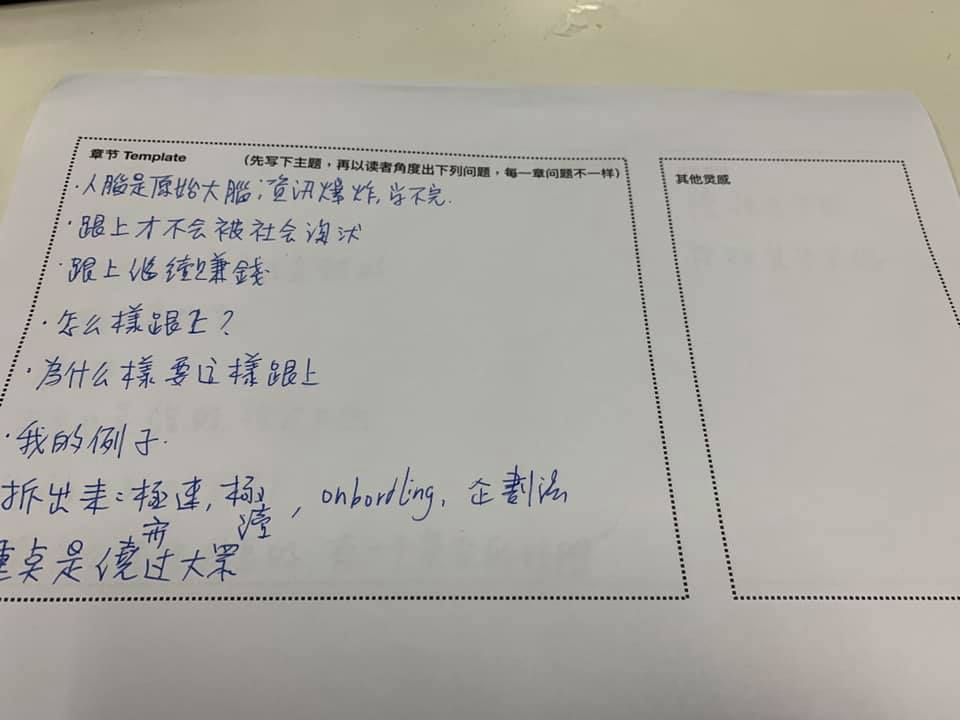 章节 Template （先写下主题，再以读者角度出下列问题，每一章问题不一样）
·人腦是原始大腦；資讯爆炸，学不完.
·跟上才不会被社会淘汰
·跟上継續賺錢
·怎么樣跟上？
·為什么樣要这樣跟上
·我的例子.
拆出来：極速，極，onbordling，企劃法
重点是繞过大罘
其他灵感